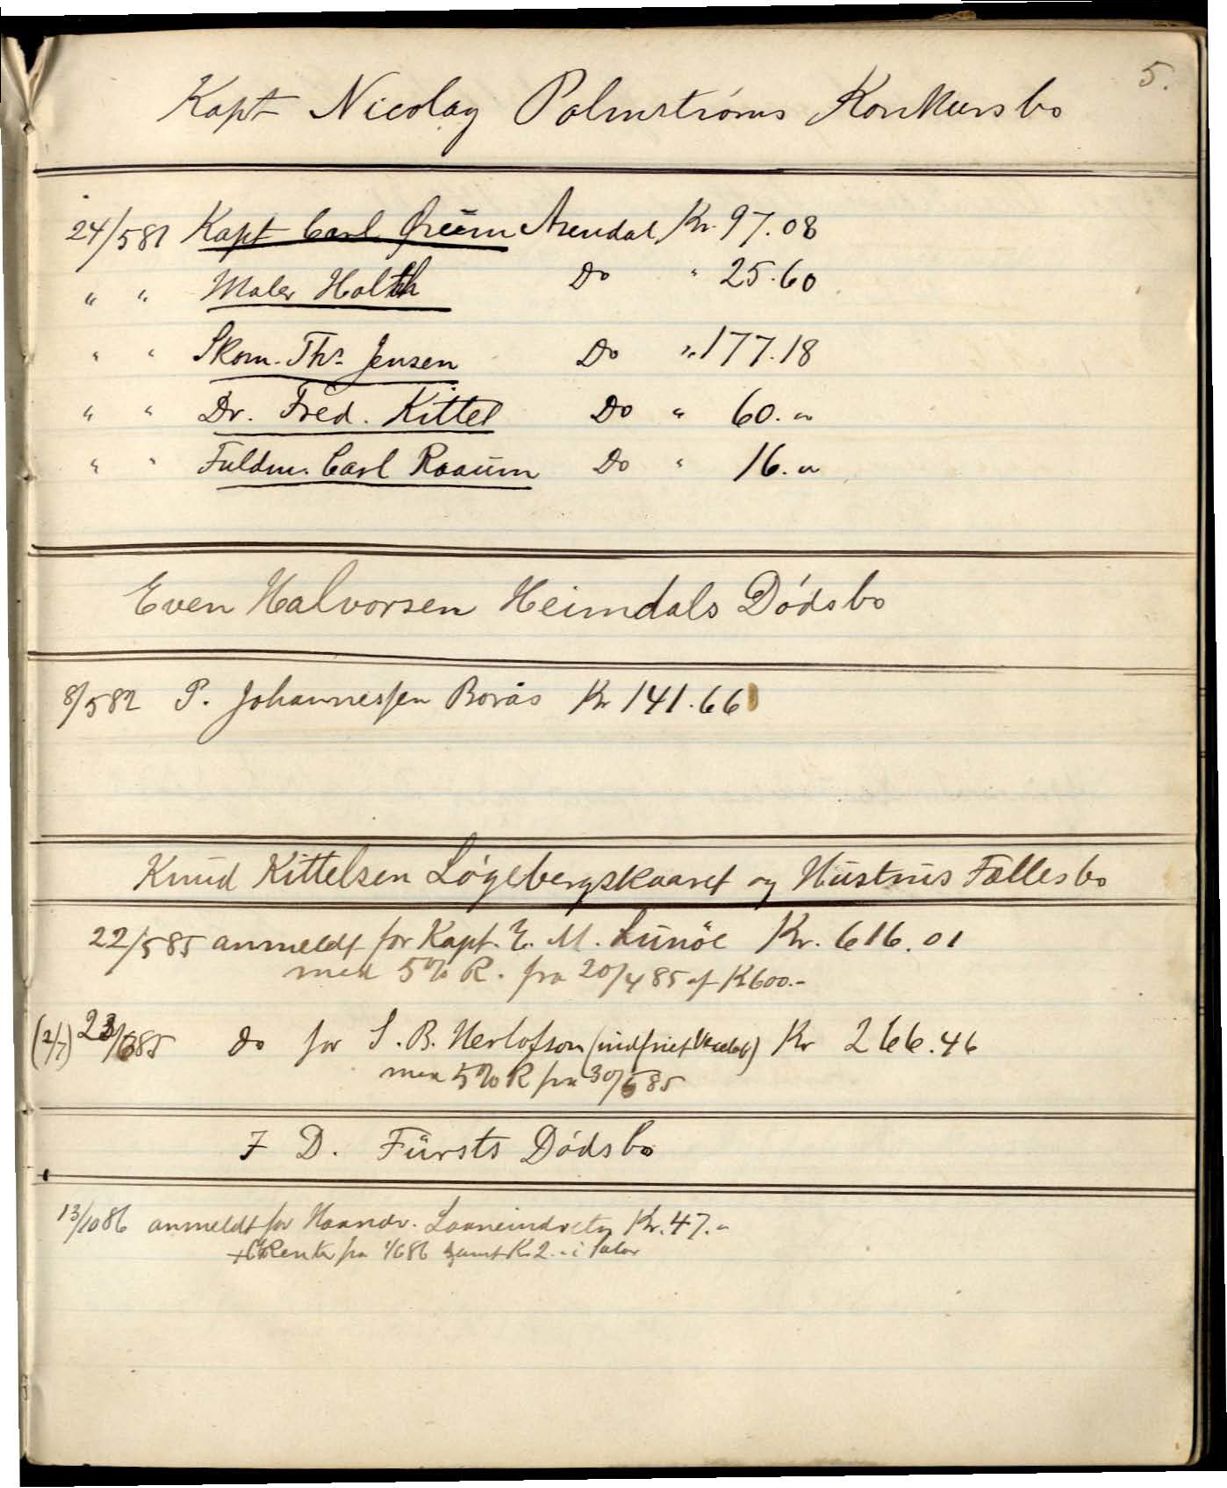 5.
Kapt Nicolay Palmströms Konkursbo
24/5 81 Kapt Carl Grüm Arendal Kr. 97.08
" " Maler Holth Do " 25.60
" " Skom. Ths. Jensen Do " 177.18
" " Dr. Fred. Kittel Do " 60. "
" " Fuldm. Carl Raaum Do " 16. "
Even Halvorsen Heimdals Dödsbo
8/5 82 P. Johannessen Borås Kr 141.66
Knud Kittelsen Lögebergskaaret og Hustrus Fællesbo
22/5 85 anmeldt for Kapt. E. M. Lunöe Kr. 616.01
med 5% R. fra 20/4 85 af Kr 600.-
(2/7) 23/6 85 do for S. B. Herlofson (indfriet Vexel) Kr 266.46
med 5% R fra 30/5 85
F D. Fürsts Dödsbo
13/10 86 anmeldt for Haandv. Laaneindretn Kr. 47. "
+ Renter fra 1/6 86 samt Kr. 2.- i Salær